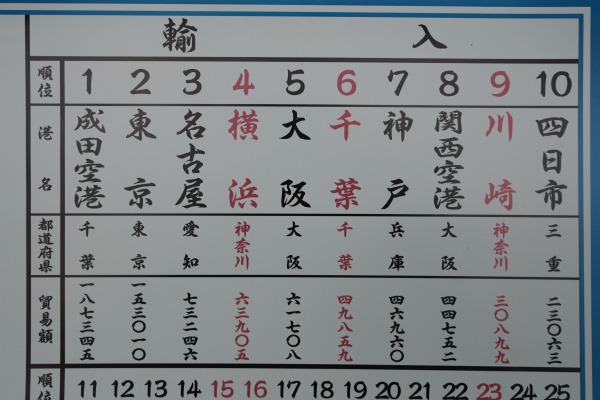 輸入
順位 1 2 3 4 5 6 7 8 9 10
港名 成田空港 東京 名古屋 横浜 大阪 千葉 神戸 関西空港 川崎 四日市
都道府県 千葉 東京 愛知 神奈川 大阪 千葉 兵庫 大阪 神奈川 三重
貿易額 一八七三四五 一五三〇一〇 七三二四六 六三九〇五 六一七〇八 四九八五九 四六九六〇 四四七五二 三〇八九九 二三〇六三
順位 11 12 13 14 15 16 17 18 19 20 21 22 23 24 25